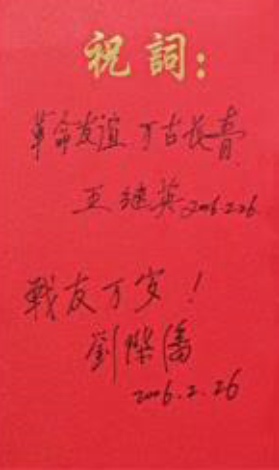 祝詞：
革命友谊 万古长青
王继英 2006.2.26
战友万岁！
劉燦藩
2006.2.26